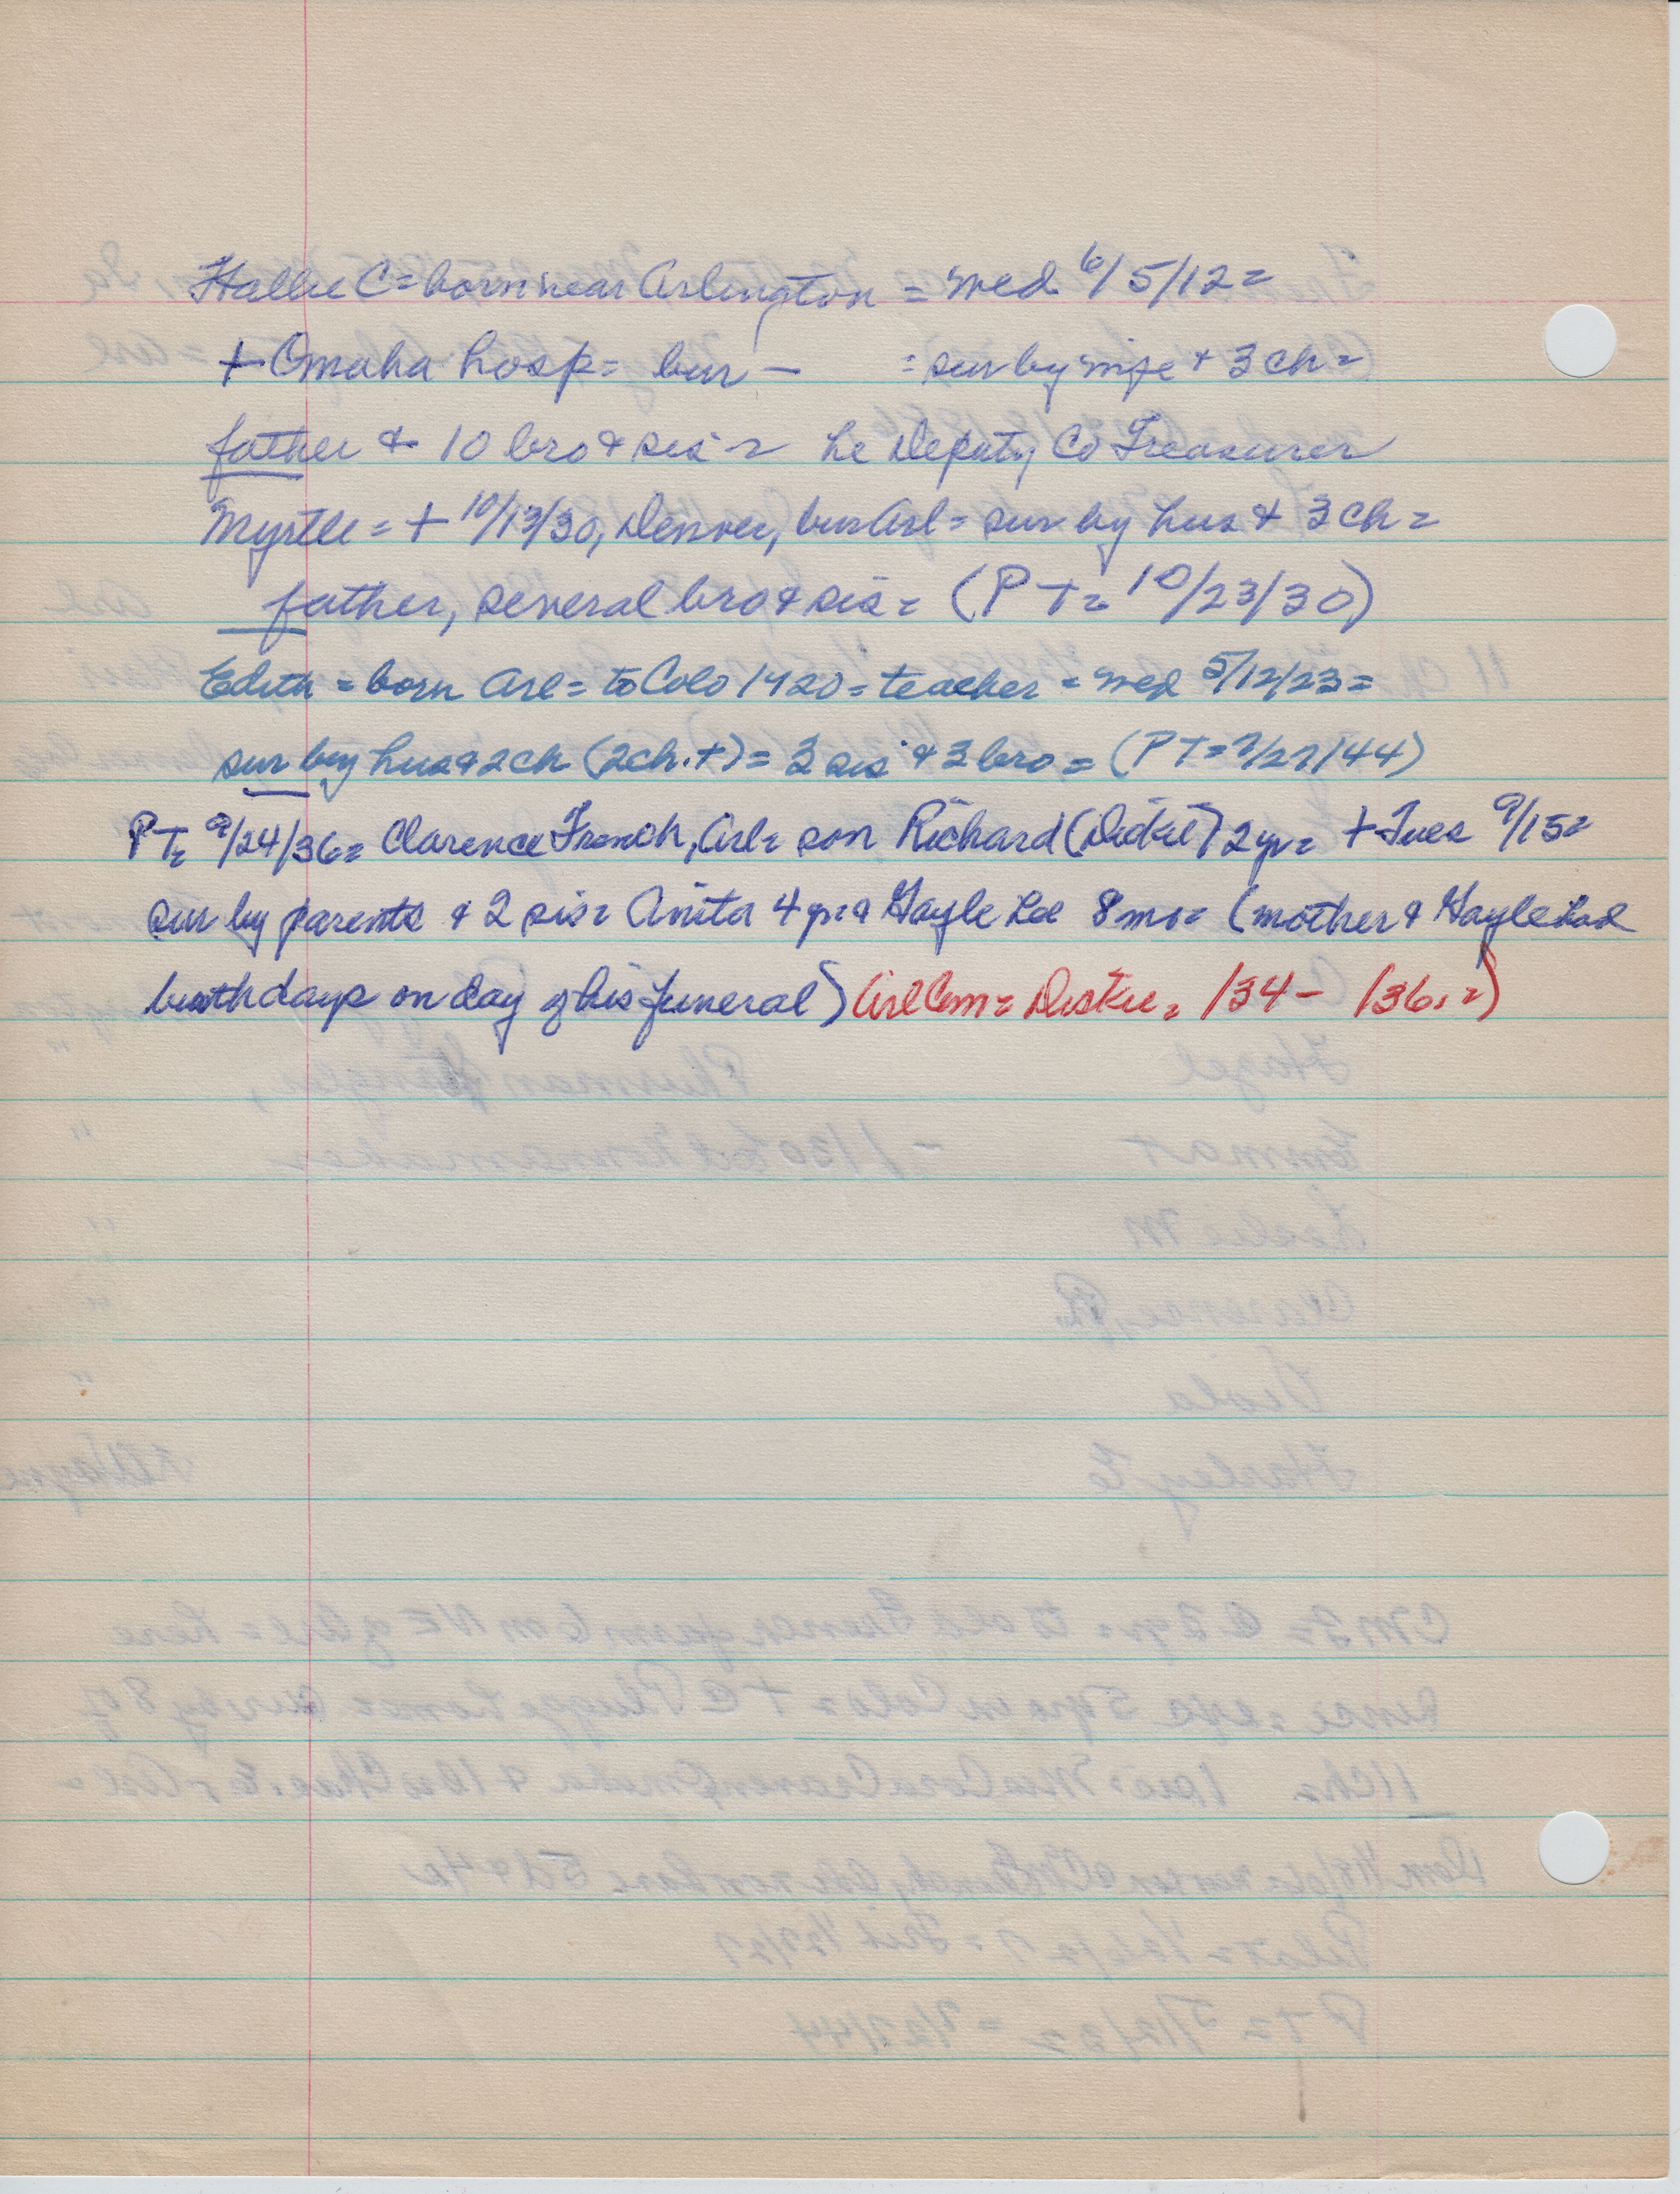 Hallie C = born near Arlington = med 6/5/12 =
+ Omaha hosp = bur — = sur by wife & 3 ch =
father & 10 bro & sis = he Deputy Co Treasurer
Myrtle = + 10/13/30, Denver, bur Arl = sur by hus & 3 ch =
father, several bro & sis = (PT = 10/23/30)
Edith = born Arl = to Colo 1920 = teacher = med 5/12/23 =
sur by hus & 2 ch (2 ch. +) = 3 sis & 3 bro = (PT = /27/44)
PT = 9/24/36 = Clarence French, Arl = son Richard (Dickie) 2 yr = + Tues 9/15 =
sur by parents & 2 sis = Anita 4 yr = & Gayle Lee 8 mo = (mother & Gayle had
birthdays on day of his funeral) Arl Cem = /34 - /36. =)